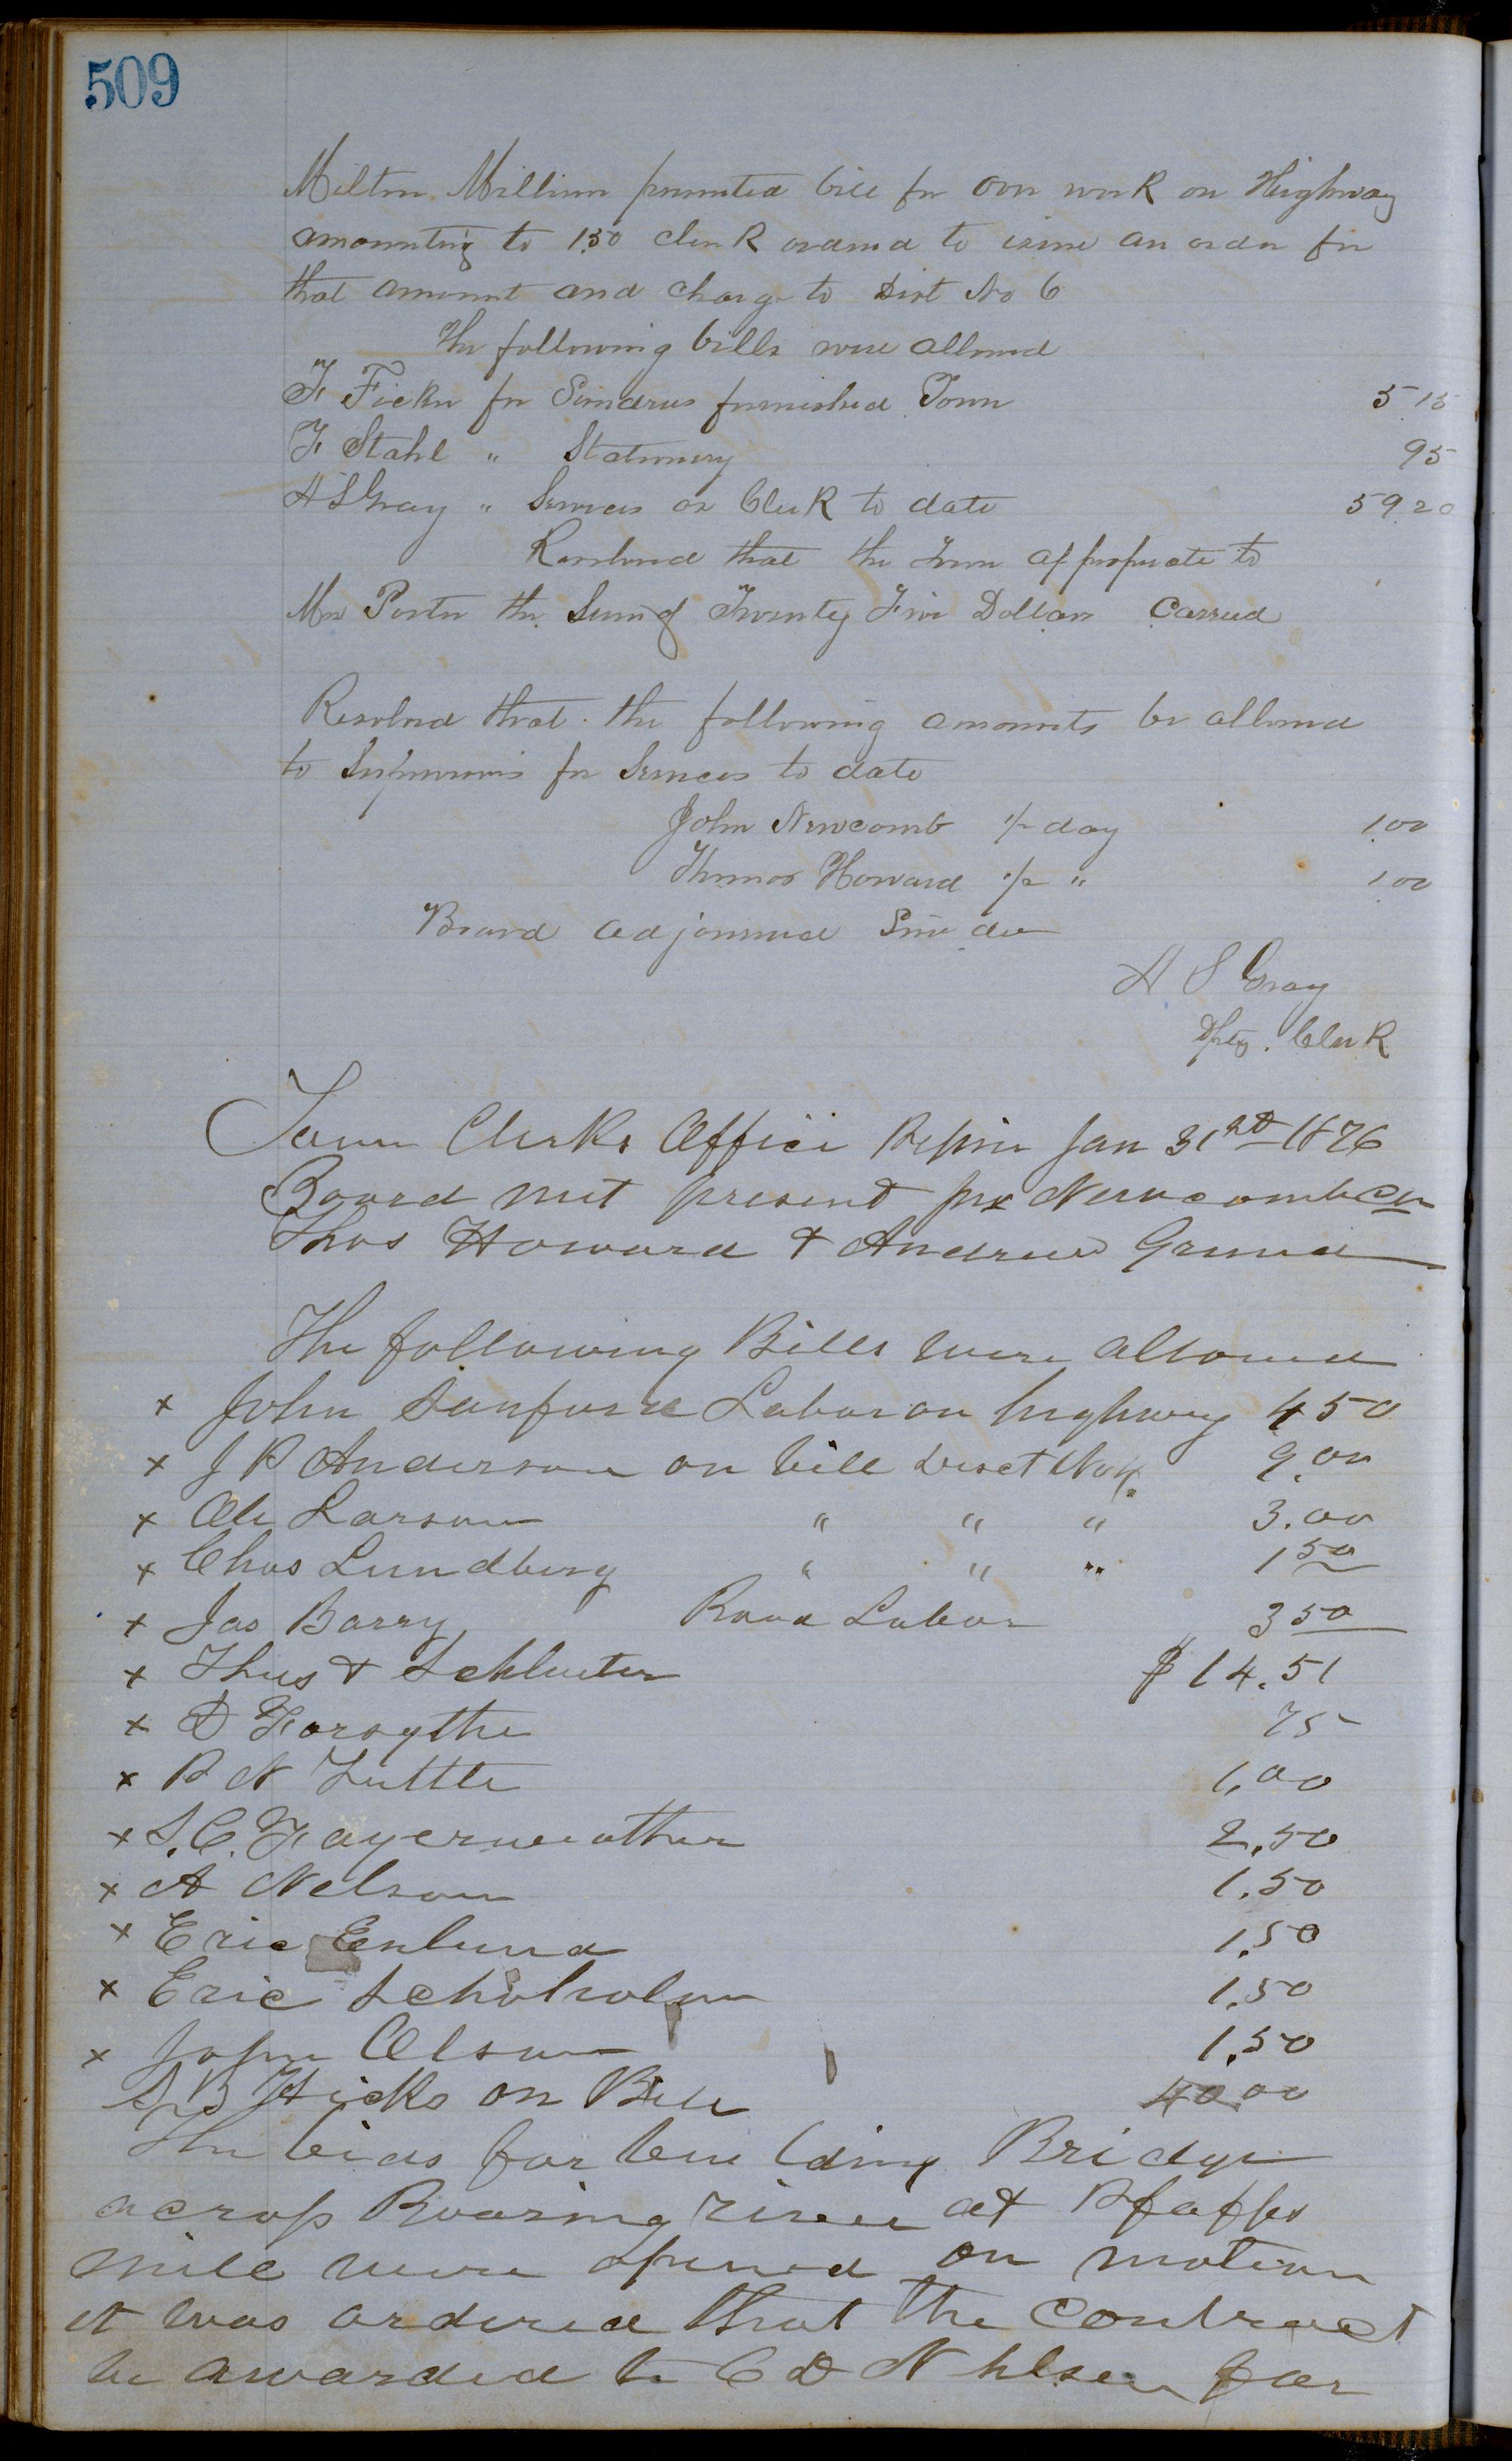 509
Milton Million presented bill for over work on Highway
amounting to 1.50 clerk ordered to issue an order for
that amount and charge to Dist No 6
The following bills were allowed
F Ficker for Sundries furnished Town 5 15
F Stahl " Stationery 95
H S Gray " Services as Clerk to date 59 20
Resolved that the Town appropriate to
Mrs Porter the Sum of Twenty Five Dollars Carried
Resolved that the following amounts be allowed
to Supervisors for Services to date
John Newcomb 1/2 day 1.00
Thomas Howard 1/2 " 1.00
Board adjourned Sine die
H S Gray
Dpty. Clerk
Town Clerks Office Pepin Jan 31st 1876
Board met present Newcomb Ch
Thos Howard & Andrew
The following Bills were allowed
x John Sanford Labor on highway 4 50
x J P Anderson on bill District No 4 9.00
x Ole Larson " " " 3.00
x Chas Lundberg " " " 1 50
x Jas Barry Road Labor 3 50
x Thies & Schluter $14.51
x D Forsythe 75
x R N Tuttle 1,00
x S. C. Fayerweather 2.50
x A Nelson 1.50
x Eric Enlund 1.50
x Eric 1.50
x John Olson 1.50
S B Hicks on Bill 40.00
The bids for building Bridge
across Roaring river at Pfaffs
mill were opened on motion
it was ordered that the contract
be awarded to C D for